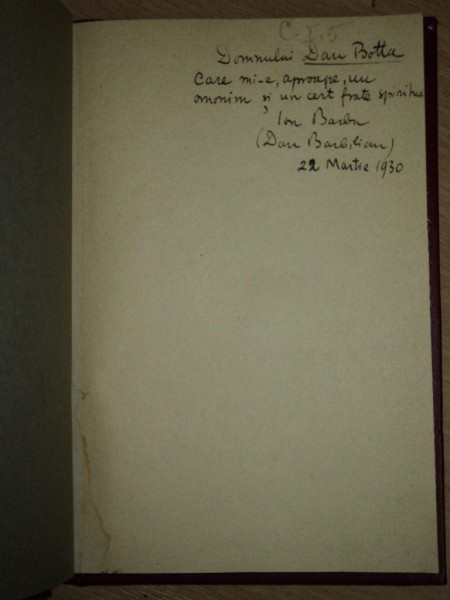 C-I.5
Domnului Dan Botta
Care mi-e, aproape, un
omonim și un cert frate spiritua
Ion Barbu
(Dan Barbilian)
22 Martie 1930